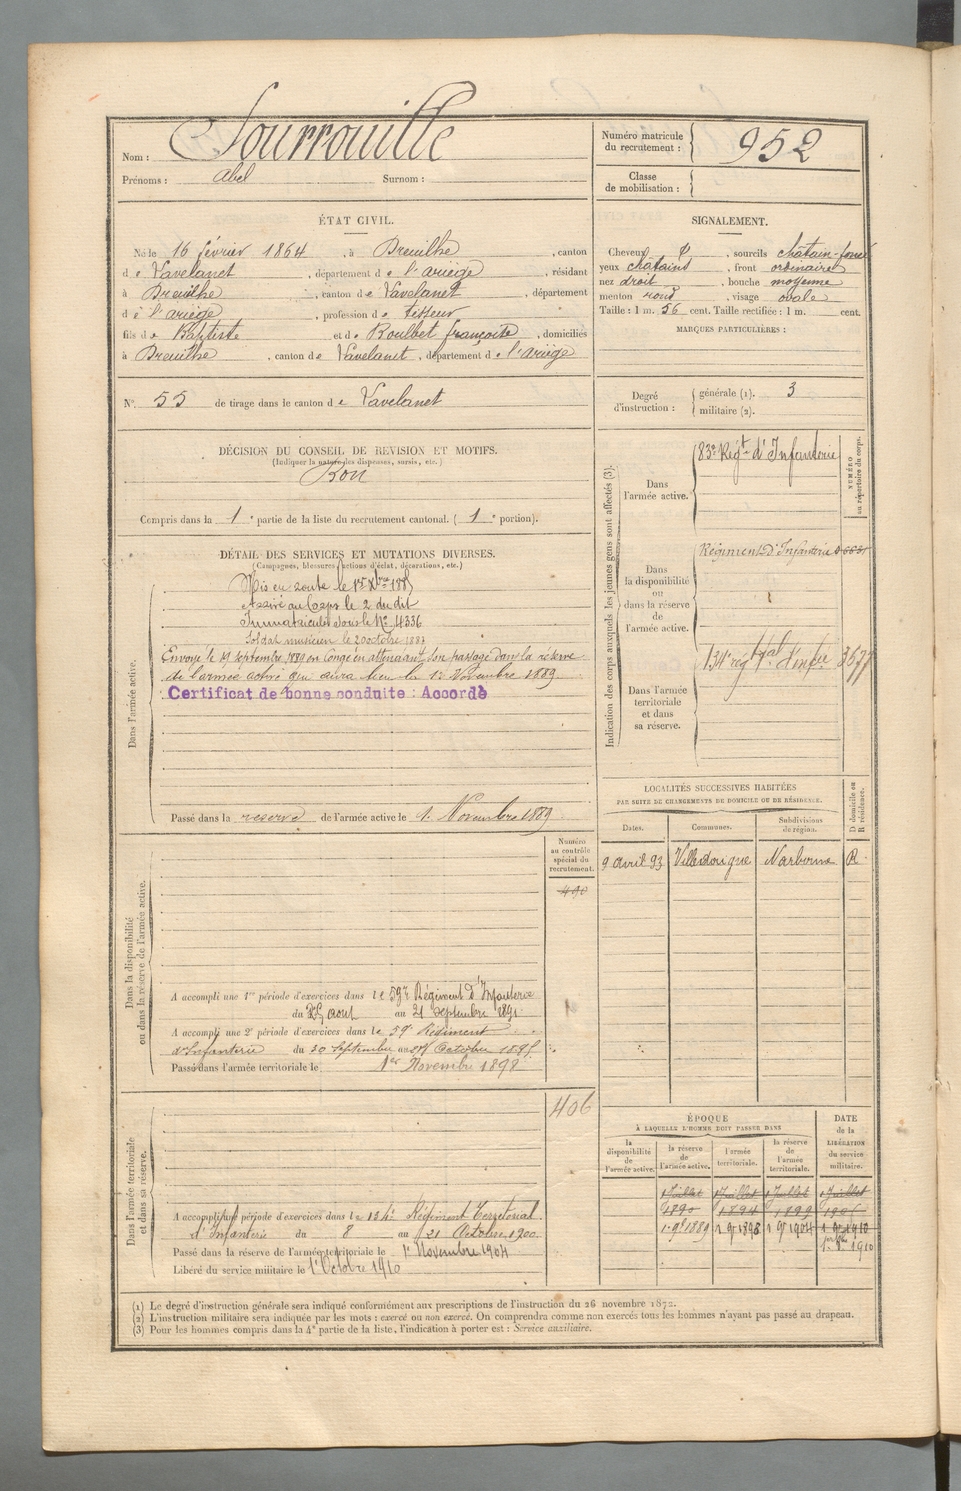 Nom : Sourrouille
Prénoms : abel Surnom :
Numéro matricule du recrutement : 952
Classe de mobilisation :
ÉTAT CIVIL.
Né le 16 février 1864, à Dreuilhe, canton
de Lavelanet, département de l'ariège, résidant
à Dreuilhe, canton de Lavelanet, département
de l'ariège, profession de tisseur
fils de Baptiste et de Roulbet françoise, domiciliés
à Dreuilhe, canton de Lavelanet, département de l'ariège
SIGNALEMENT.
Cheveux d, sourcils châtain-foncé
yeux chatains, front ordinaire
nez droit, bouche moyenne
menton rond, visage ovale
Taille : 1 m. 56 cent. Taille rectifiée : 1 m. cent.
MARQUES PARTICULIÈRES :
N° 55 de tirage dans le canton de Lavelanet
Degré d'instruction : générale (1). 3
militaire (2).
DÉCISION DU CONSEIL DE REVISION ET MOTIFS.
(Indiquer la nature des dispenses, sursis, etc.)
Bon
Compris dans la 1e partie de la liste du recrutement cantonal. (1e portion).
DÉTAIL DES SERVICES ET MUTATIONS DIVERSES.
(Campagnes, blessures, actions d'éclat, décorations, etc.)
Dans l'armée active.
Mis en route le 1er Xbre 1885
Arrivé au Corps le 2 du dit
Immatriculé sous le N° 4336
Soldat musicien le 20 octobre 1887
Envoyé le 19 septembre 1889 en Congé en attendant son passage dans la réserve
de l'armée active qui aura lieu le 1er Novembre 1889
Certificat de bonne conduite : Accordé
Passé dans la reserve de l'armée active le 1. Novembre 1889
Indication des corps auxquels les jeunes gens sont affectés (3).
NUMÉRO au répertoire du corps.
Dans l'armée active.
83e Régt d'Infanterie
Dans la disponibilité ou dans la réserve de l'armée active.
Régiment d'Infanterie
Dans l'armée territoriale et dans sa réserve.
134e rég tal d'infie 3677
LOCALITÉS SUCCESSIVES HABITÉES
PAR SUITE DE CHANGEMENTS DE DOMICILE OU DE RÉSIDENCE.
Dates. Communes. Subdivisions de région. D domicile ou R résidence.
9 avril 93 Villedaigne Narbonne R
Dans la disponibilité ou dans la réserve de l'armée active.
Numéro au contrôle spécial du recrutement.
490
A accompli une 1re période d'exercices dans le 59e Régiment d'Infanterie
du 25 aout au 21 septembre 1891
A accompli une 2e période d'exercices dans le 59e Régiment
d'Infanterie du 30 Septembre au 27 Octobre 1895
Passé dans l'armée territoriale le 1er Novembre 1898
Dans l'armée territoriale et dans sa réserve.
406
A accompli une période d'exercices dans le 134e Régiment Territorial
d'Infanterie du 8 au 21 Octobre 1900
Passé dans la réserve de l'armée territoriale le 1er Novembre 1904
Libéré du service militaire le 1er Octobre 1910
ÉPOQUE
À LAQUELLE L'HOMME DOIT PASSER DANS
DATE de la LIBÉRATION du service militaire.
la disponibilité de l'armée active. la réserve de l'armée active. l'armée territoriale. la réserve de l'armée territoriale.
1 Juillet 1 Juillet 1 Juillet 1 Juillet
1890 1894 1899
1. 9bre 1889 1. 9bre 1898 1. 9bre 1904 1. 9bre 1910
1er 8bre 1910
(1) Le degré d'instruction générale sera indiqué conformément aux prescriptions de l'instruction du 26 novembre 1872.
(2) L'instruction militaire sera indiquée par les mots : exercé ou non exercé. On comprendra comme non exercés tous les hommes n'ayant pas passé au drapeau.
(3) Pour les hommes compris dans la 4e partie de la liste, l'indication à porter est : Service auxiliaire.